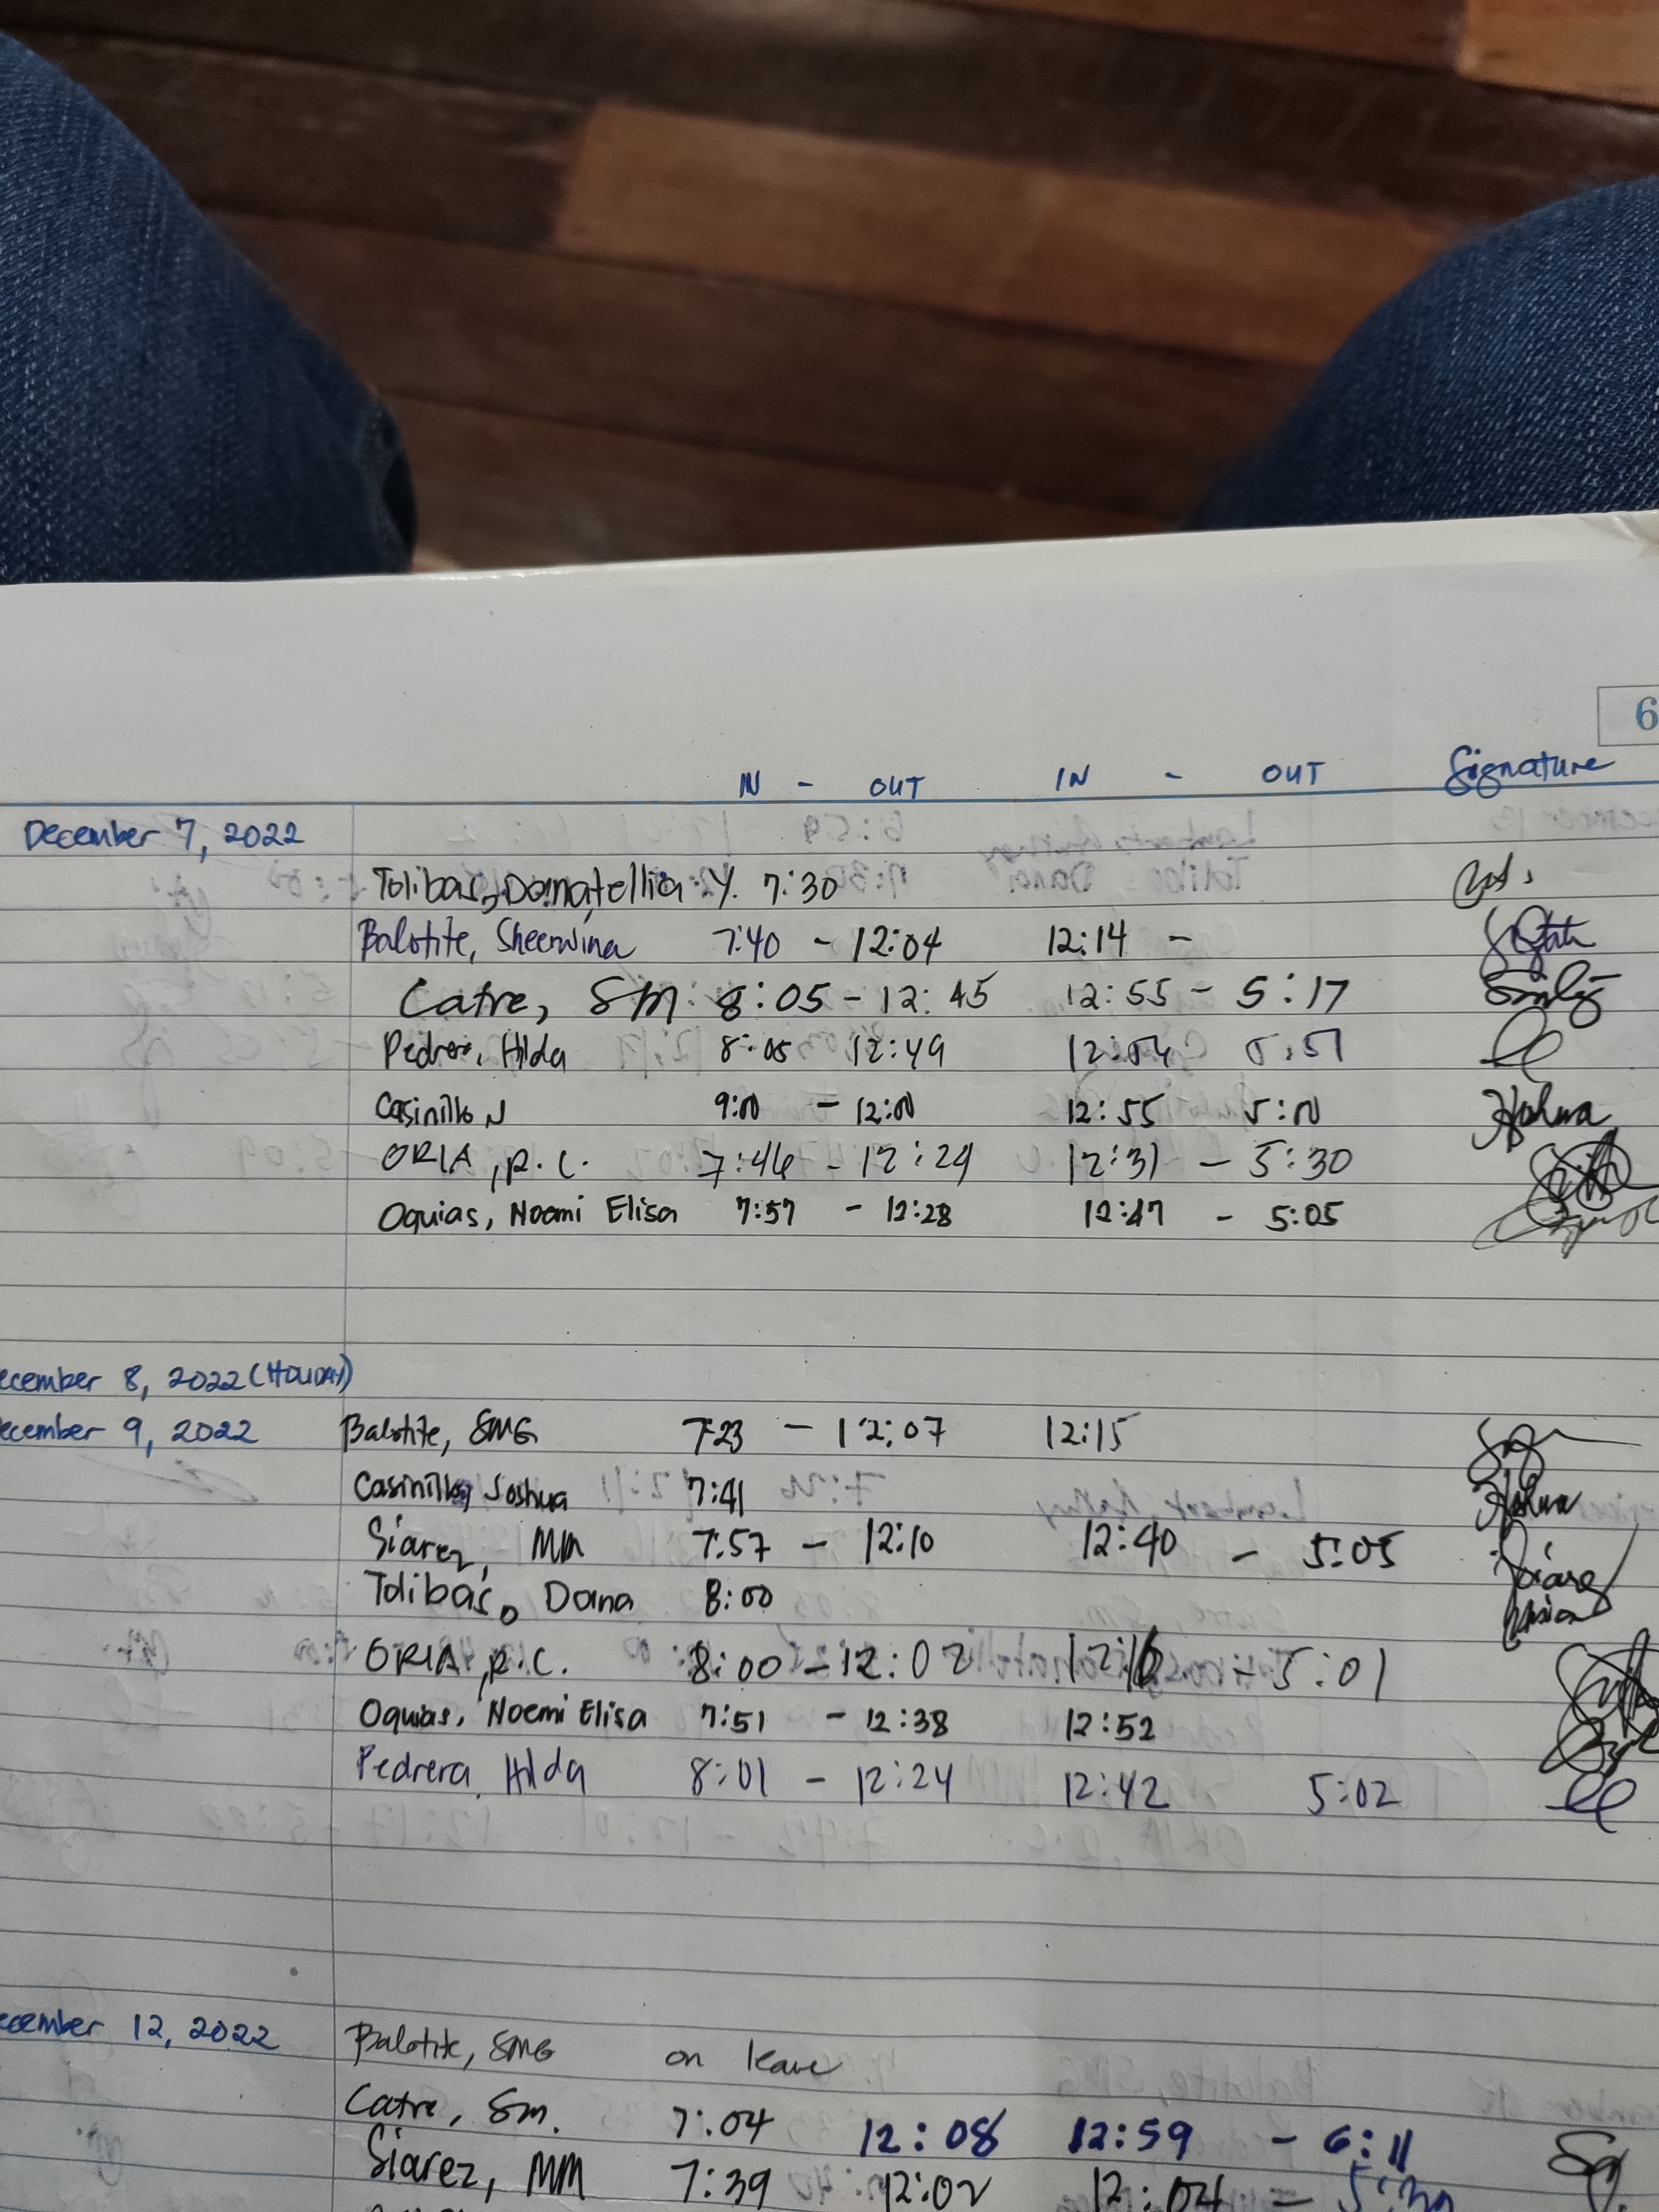 6
IN - OUT IN - OUT Signature
December 7, 2022
Tolibas, Donatellia Y. 7:30
Balotite, Sheerwina 7:40 - 12:04 12:14 -
Catre, SM. 8:05 - 12:45 12:55 - 5:17
Pedrera, Hilda 8:05 12:49 12:54 5:51
Casinillo J 9:00 - 12:00 12:55 5:00
ORIA, R.C. 7:46 - 12:24 12:31 - 5:30
Oquias, Noemi Elisa 7:57 - 12:28 12:47 - 5:05
ecember 8, 2022 (HOLIDAY)
ecember 9, 2022 Balotite, SMG 7:23 - 12:07 12:15
Casinillo, Joshua 7:41
Siarez, MM 7:57 - 12:10 12:40 - 5:05
Tolibas, Dona 8:00
ORIA, R.C. 8:00 - 12:02 12:16 - 5:01
Oquias, Noemi Elisa 7:51 - 12:38 12:52
Pedrera, Hilda 8:01 - 12:24 12:42 5:02
ecember 12, 2022 Balotite, SMG on leave
Catre, Sm. 7:04 12:08 12:59 - 6:11
Siarez, MM 7:39 12:02 12:04 -